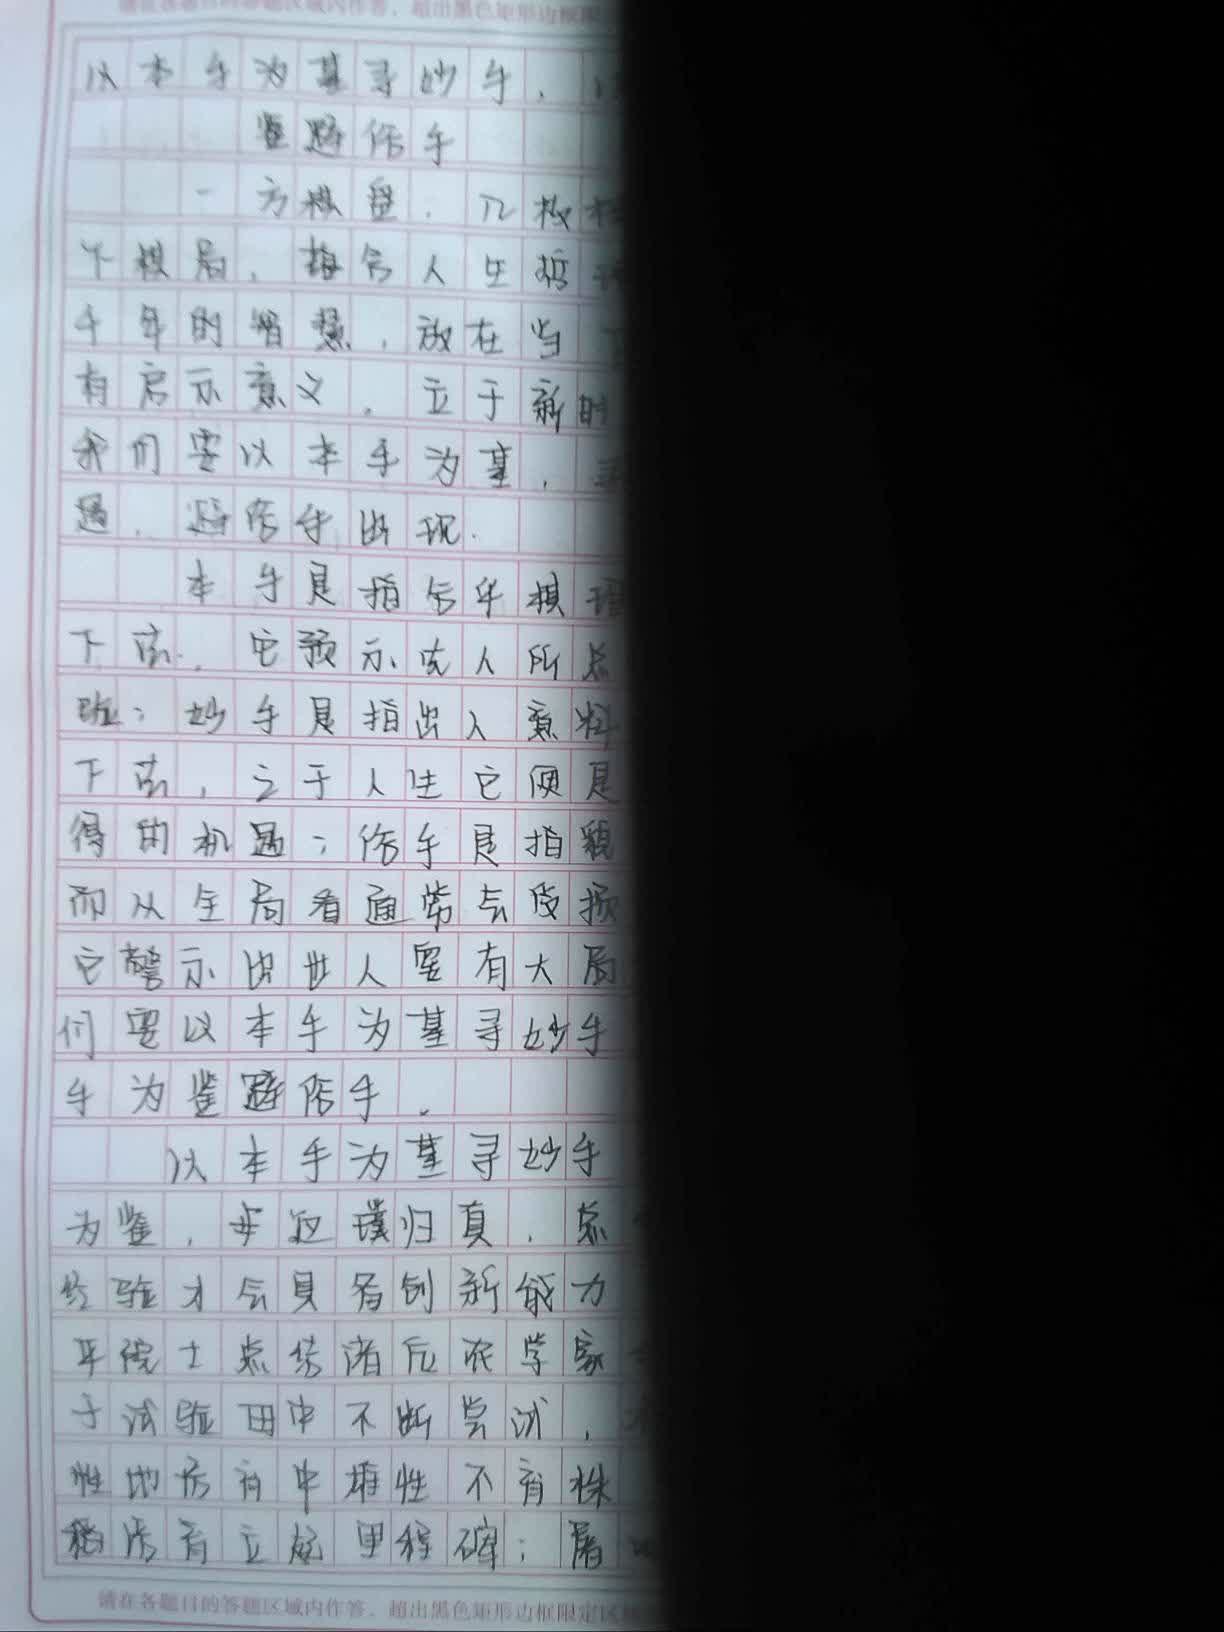 请在各题目的答题区域内作答，超出黑色矩形边框限
以本手为基寻妙手，以
鉴避俗手
一方棋盘，几枚棋
下棋局，蕴含人生哲理
千年的智慧，放在当下
有启示意义。立于新时
我们要以本手为基，寻
遇，避俗手出现。
本手是指合乎棋理
下法，它预示先人所总
验；妙手是指出人意料
下法，之于人生它便是
得的机遇；俗手是指貌
而从全局看通常会受损
它警示出世人要有大局
们要以本手为基寻妙手
手为鉴避俗手。
以本手为基寻妙手
为鉴，返璞归真，总
经验才会具备创新能力
平院士总结诸后农学家
于试验田中不断尝试，
性地培育中雄性不育株
稻培育立起里程碑；屠
请在各题目的答题区域内作答，超出黑色矩形边框限定区